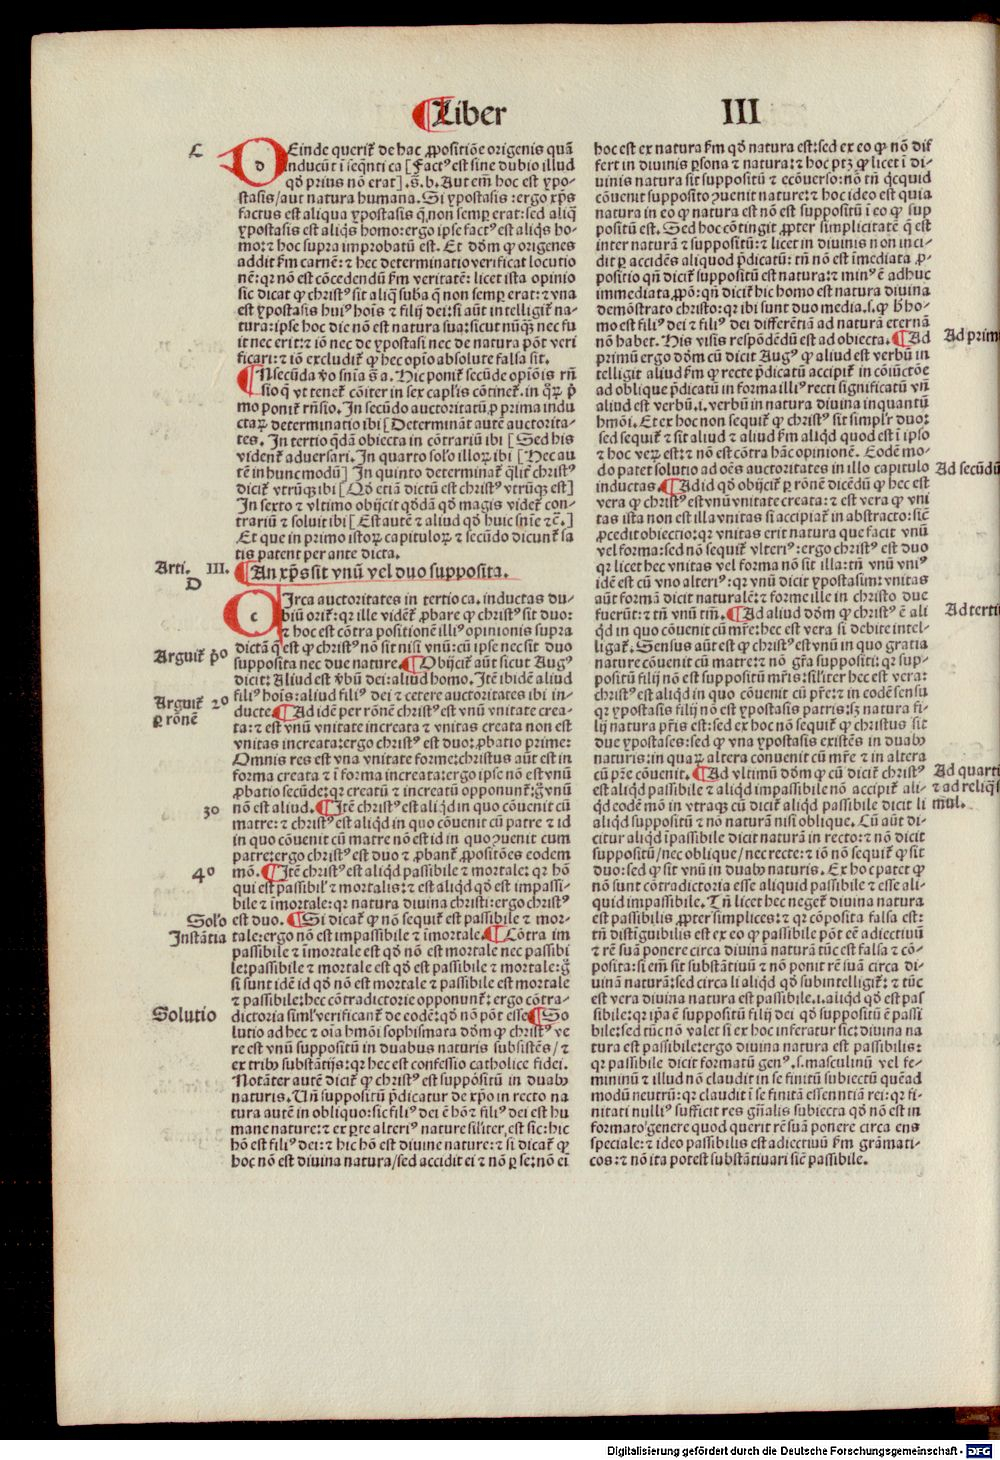 ¶Liber III
C
DEinde querit᷑ de hac ꝓpositiōe origenis quā
inducūt ī seq̄nti ca [Fact⁹ est sine dubio illud
qđ prius nō erat] .s̄.h. Aut em̄ hoc est ypo-
stasis/aut natura humana. Si ypostasis :ergo xp̄s
factus est aliqua ypostasis q̄ non semꝑ erat: sed aliq̄
ypostasis est aliq̄s homo: ergo ipse fact⁹ est aliq̄s ho-
mo: ⁊ hoc supra improbatū est. Et dōm ꝙ origenes
addit ẜm carnē: ⁊ hec determinatio verificat locutio
nē: qr nō est cōcedendū ẜm veritatē: licet ista opinio
sic dicat ꝙ christ⁹ sit aliq̄ suba q̄ non semꝑ erat: ⁊ vna
est ypostasis hui⁹ hoīs ⁊ filij dei: si aūt intelligit᷑ na-
tura: ipse hoc dic nō est natura sua: sicut nūq̄ꝫ nec fu
it nec erit: ⁊ iō nec de ypostasi nec de natura pōt veri
ficari: ⁊ iō excludit᷑ ꝙ hec opīo absolute falsa sit.
¶IN secūda v̄o snīa s̄ a. Hic ponit᷑ secūde opiōis rn̄
sio q̄ vt tenet᷑ cōiter in sex caplis cōtinet᷑. in q̄ꝝ p̄
mo ponit᷑ rn̄sio. In secūdo auctoritatū ꝓ prima indu
ctaꝝ determinatio ibi [Determināt autē auctorita-
tes. In tertio q̄dā obiecta in cōtrariū ibi [Sed his
vident᷑ aduersari. In quarto solo illoꝝ ibi [Hec au
tē in hunc modū] In quinto determinat᷑ q̄lit᷑ christ⁹
dicit᷑ vtrūqꝫ ibi [Qđ etiā dictū est christ⁹ vtrūqꝫ est]
In sexto ⁊ vltimo obijcit qđdā qđ magis videt᷑ con-
trariū ⁊ soluit ibi [Est autē ⁊ aliud qđ huic snīe ⁊c̄.]
Et que in primo istoꝝ capituloꝝ ⁊ secūdo dicunt᷑ sa
tis patent per ante dicta.
Arti. III.
D
¶An xp̄s sit vnū vel duo supposita.
CIrca auctoritates in tertio ca. inductas du-
biū orit᷑: qr ille vident᷑ ꝓbare ꝙ christ⁹ sit duo:
⁊ hoc est cōtra positionē illi⁹ opinionis supra
dictā q̄ est ꝙ christ⁹ nō sit nisi vnū: cū ipse nec sit duo
Arguit᷑ p̄o
supposita nec due nature. ¶Obijcit᷑ aūt sicut Aug⁹
dicit: Aliud est v̄bū dei: aliud homo. Itē ibidē aliud
Arguit᷑ 2o
ꝑ rōnē
fili⁹ hoīs: aliud fili⁹ dei ⁊ cetere auctoritates ibi in-
ducte. ¶Ad idē per rōnē christ⁹ est vnū vnitate crea-
ta: ⁊ est vnū vnitate increata ⁊ vnitas creata non est
vnitas increata: ergo christ⁹ est duo: ꝓbatio prime:
Omnis res est vna vnitate forme: christus aūt est in
forma creata ⁊ ī forma increata: ergo ipse nō est vnū
ꝓbatio secūde: qr creatū ⁊ increatū opponunt᷑: g̊ vnū
3o
nō est aliud. ¶Itē christ⁹ est aliqd in quo cōuenit cū
matre: ⁊ christ⁹ est aliqd in quo cōuenit cū patre ⁊ id
in quo cōuenit cū matre nō est id in quo ꝯuenit cum
patre: ergo christ⁹ est duo ⁊ ꝓbant᷑ ꝓpositōes eodem
4o
mō. ¶Itē christ⁹ est aliqd passibile ⁊ mortale: qr hō
qui est passibil' ⁊ mortalis: ⁊ est aliqd qđ est impassi-
bile ⁊ īmortale: qr natura diuina christi: ergo christ⁹
Sol'o
est duo. ¶Si dicat᷑ ꝙ nō sequit᷑ est passibile ⁊ mor-
Instātia
tale: ergo nō est impassibile ⁊ īmortale. ¶Cōtra im
passibile ⁊ īmortale est qđ nō est mortale nec passibi
le: passibile ⁊ mortale est qđ est passibile ⁊ mortale: g̊
si sunt idē id qđ nō est mortale ⁊ passibile est mortale
⁊ passibile: hec cōtradictorie opponunt᷑: ergo cōtra-
Solutio
dictoria siml' verificant᷑ de eodē: qđ nō pōt esse. ¶So
lutio ad hec ⁊ oīa hmōi sophismata dōm ꝙ christ⁹ ve
re est vnū suppositū in duabus naturis subsistēs/ ⁊
ex tribꝰ substātijs: qr hec est confessio catholice fidei.
Notāter autē dicit᷑ ꝙ christ⁹ est suppositū in duabꝰ
naturis. Un̄ suppositū p̄dicatur de xp̄o in recto na
tura autē in obliquo: sic fili⁹ dei ē hō ⁊ fili⁹ dei est hu
mane nature: ⁊ ex pte alteri⁹ nature sil'iter est sic: hic
hō est fili⁹ dei: ⁊ hic hō est diuine nature: ⁊ si dicat᷑ ꝙ
hoc nō est diuina natura/sed accidit ei ⁊ nō ꝑ se: nō ei
hoc est ex natura ẜm qđ natura est: sed ex eo ꝙ nō dif
fert in diuinis ꝑsona ⁊ natura: ⁊ hoc ptꝫ ꝙ licet ī di-
uinis natura sit suppositū ⁊ ecōuerso: nō tn̄ q̄cquid
cōuenit supposito ꝯuenit nature: ⁊ hoc ideo est quia
natura in eo ꝙ natura est nō est suppositū ī eo ꝙ sup
positū est. Sed hoc cōtingit ꝓpter simplicitatē q̄ est
inter naturā ⁊ suppositū: ⁊ licet in diuinis non inci-
dit ꝑ accidēs aliquod p̄dicatū: tn̄ nō est īmediata ꝓ-
positio qn̄ dicit᷑ suppositū est natura: ⁊ min⁹ ē adhuc
immediata ꝓpō: qn̄ dicit᷑ hic homo est natura diuina
demōstrato christo: qr ibi sunt duo media .s. ꝙ hō ho-
mo est fili⁹ dei ⁊ fili⁹ dei differētiā ad naturā eternā
nō habet. His visis respōdēdū est ad obiecta. ¶Ad
Ad prim
primū ergo dōm cū dicit Aug⁹ ꝙ aliud est verbū in
telligit aliud ẜm ꝙ recte p̄dicatū accipit᷑ in cōiūctōe
ad oblique p̄dicatū in forma illi⁹ recti significatū vn̄
aliud est verbū .i. verbū in natura diuina inquantū
hmōi. Et ex hoc non sequit᷑ ꝙ christ⁹ sit simpl'r duo:
sed sequit᷑ ꝙ sit aliud ⁊ aliud ẜm aliqd quod est ī ipso
⁊ hoc veꝝ est: ⁊ nō est cōtra hāc opinionē. Eodē mo-
Ad secūdū
do patet solutio ad oēs auctoritates in illo capitulo
inductas. ¶Ad id qđ obijcit᷑ ꝑ rōnē dicēdū ꝙ hec est
vera ꝙ christ⁹ est vnū vnitate creata: ⁊ est vera ꝙ vni
tas ista non est illa vnitas si accipiat᷑ in abstracto: sic̄
ꝓcedit obiectio: qr vnitas erit natura que facit vnū
vel forma: sed nō sequit᷑ vlteri⁹: ergo christ⁹ est duo
qr licet hec vnitas vel forma nō sit illa: tn̄ vnū vni⁹
idē est cū vno alteri⁹: qr vnū dicit ypostasim: vnitas
aūt formā dicit naturalē: ⁊ forme ille in christo due
Ad tertiū
fuerūt: ⁊ tn̄ vnū tm̄. ¶Ad aliud dōm ꝙ christ⁹ ē ali
qd in quo cōuenit cū mr̄e: hec est vera si debite intel-
ligat᷑. Sensus aūt est ꝙ christ⁹ est vnū in quo gratia
nature cōuenit cū matre: ⁊ nō gr̄a suppositi: qr sup-
positū filij nō est suppositū mr̄is: sil'iter hec est vera:
christ⁹ est aliqd in quo cōuenit cū pr̄e: ⁊ in eodē sensu
qr ypostasis filij nō est ypostasis patris: sꝫ natura fi-
lij natura pr̄is est: sed ex hoc nō sequit᷑ ꝙ christus sit
due ypostases: sed ꝙ vna ypostasis existēs in duabꝰ
naturis: in quaꝝ altera conuenit cū mr̄e ⁊ in altera
Ad quartū
⁊ ad reliq̄ si
mul.
cū pr̄e cōuenit. ¶Ad vltimū dōm ꝙ cū dicit᷑ christ⁹
est aliqd passibile ⁊ aliqd impassibile nō accipit᷑ ali-
qd eodē mō in vtraqꝫ cū dicit᷑ aliqd passibile dicit li
aliqd suppositū ⁊ nō naturā nisi oblique. Cū aūt di-
citur aliqd īpassibile dicit naturā in recto: ⁊ nō dicit
suppositū/nec oblique/nec recte: ⁊ iō nō sequit᷑ ꝙ sit
duo: sed ꝙ sit vnū in duabꝰ naturis. Ex hoc patet ꝙ
nō sunt cōtradictoria esse aliquid passibile ⁊ esse ali-
quid impassibile. Tn̄ licet hec neget᷑ diuina natura
est passibilis ꝓpter simplices: ⁊ qr cōposita falsa est:
tn̄ distīguibilis est ex eo ꝙ passibile pōt eē adiectiuū
⁊ rē suā ponere circa diuinā naturā tūc est falsa ⁊ cō-
posita: si em̄ sit substātiuū ⁊ nō ponit rē suā circa di-
uinā naturā: sed circa li aliqd qđ subintelligit᷑: ⁊ tūc
est vera diuina natura est passibile .i. aliqd qđ est pas
sibile: qr ip̄a ē suppositū filij dei qđ suppositū ē passi
bile: sed tūc nō valet si ex hoc inferatur sic: diuina na
tura est passibile: ergo diuina natura est passibilis:
qr passibile dicit formatū gen⁹ .s. masculinū vel fe-
mininū ⁊ illud nō claudit in se finitū subiectū quēad
modū neutrū: qr claudit ī se finitā essentiā rei: qr fi-
nitati nulli⁹ sufficit res gn̄alis subiecta qđ nō est in-
formato genere quod querit rē suā ponere circa ens
speciale: ⁊ ideo passibilis est adiectiuū ẜm grāmati-
cos: ⁊ nō ita potest substātiuari sic̄ passibile.
Digitalisierung gefördert durch die Deutsche Forschungsgemeinschaft - DFG